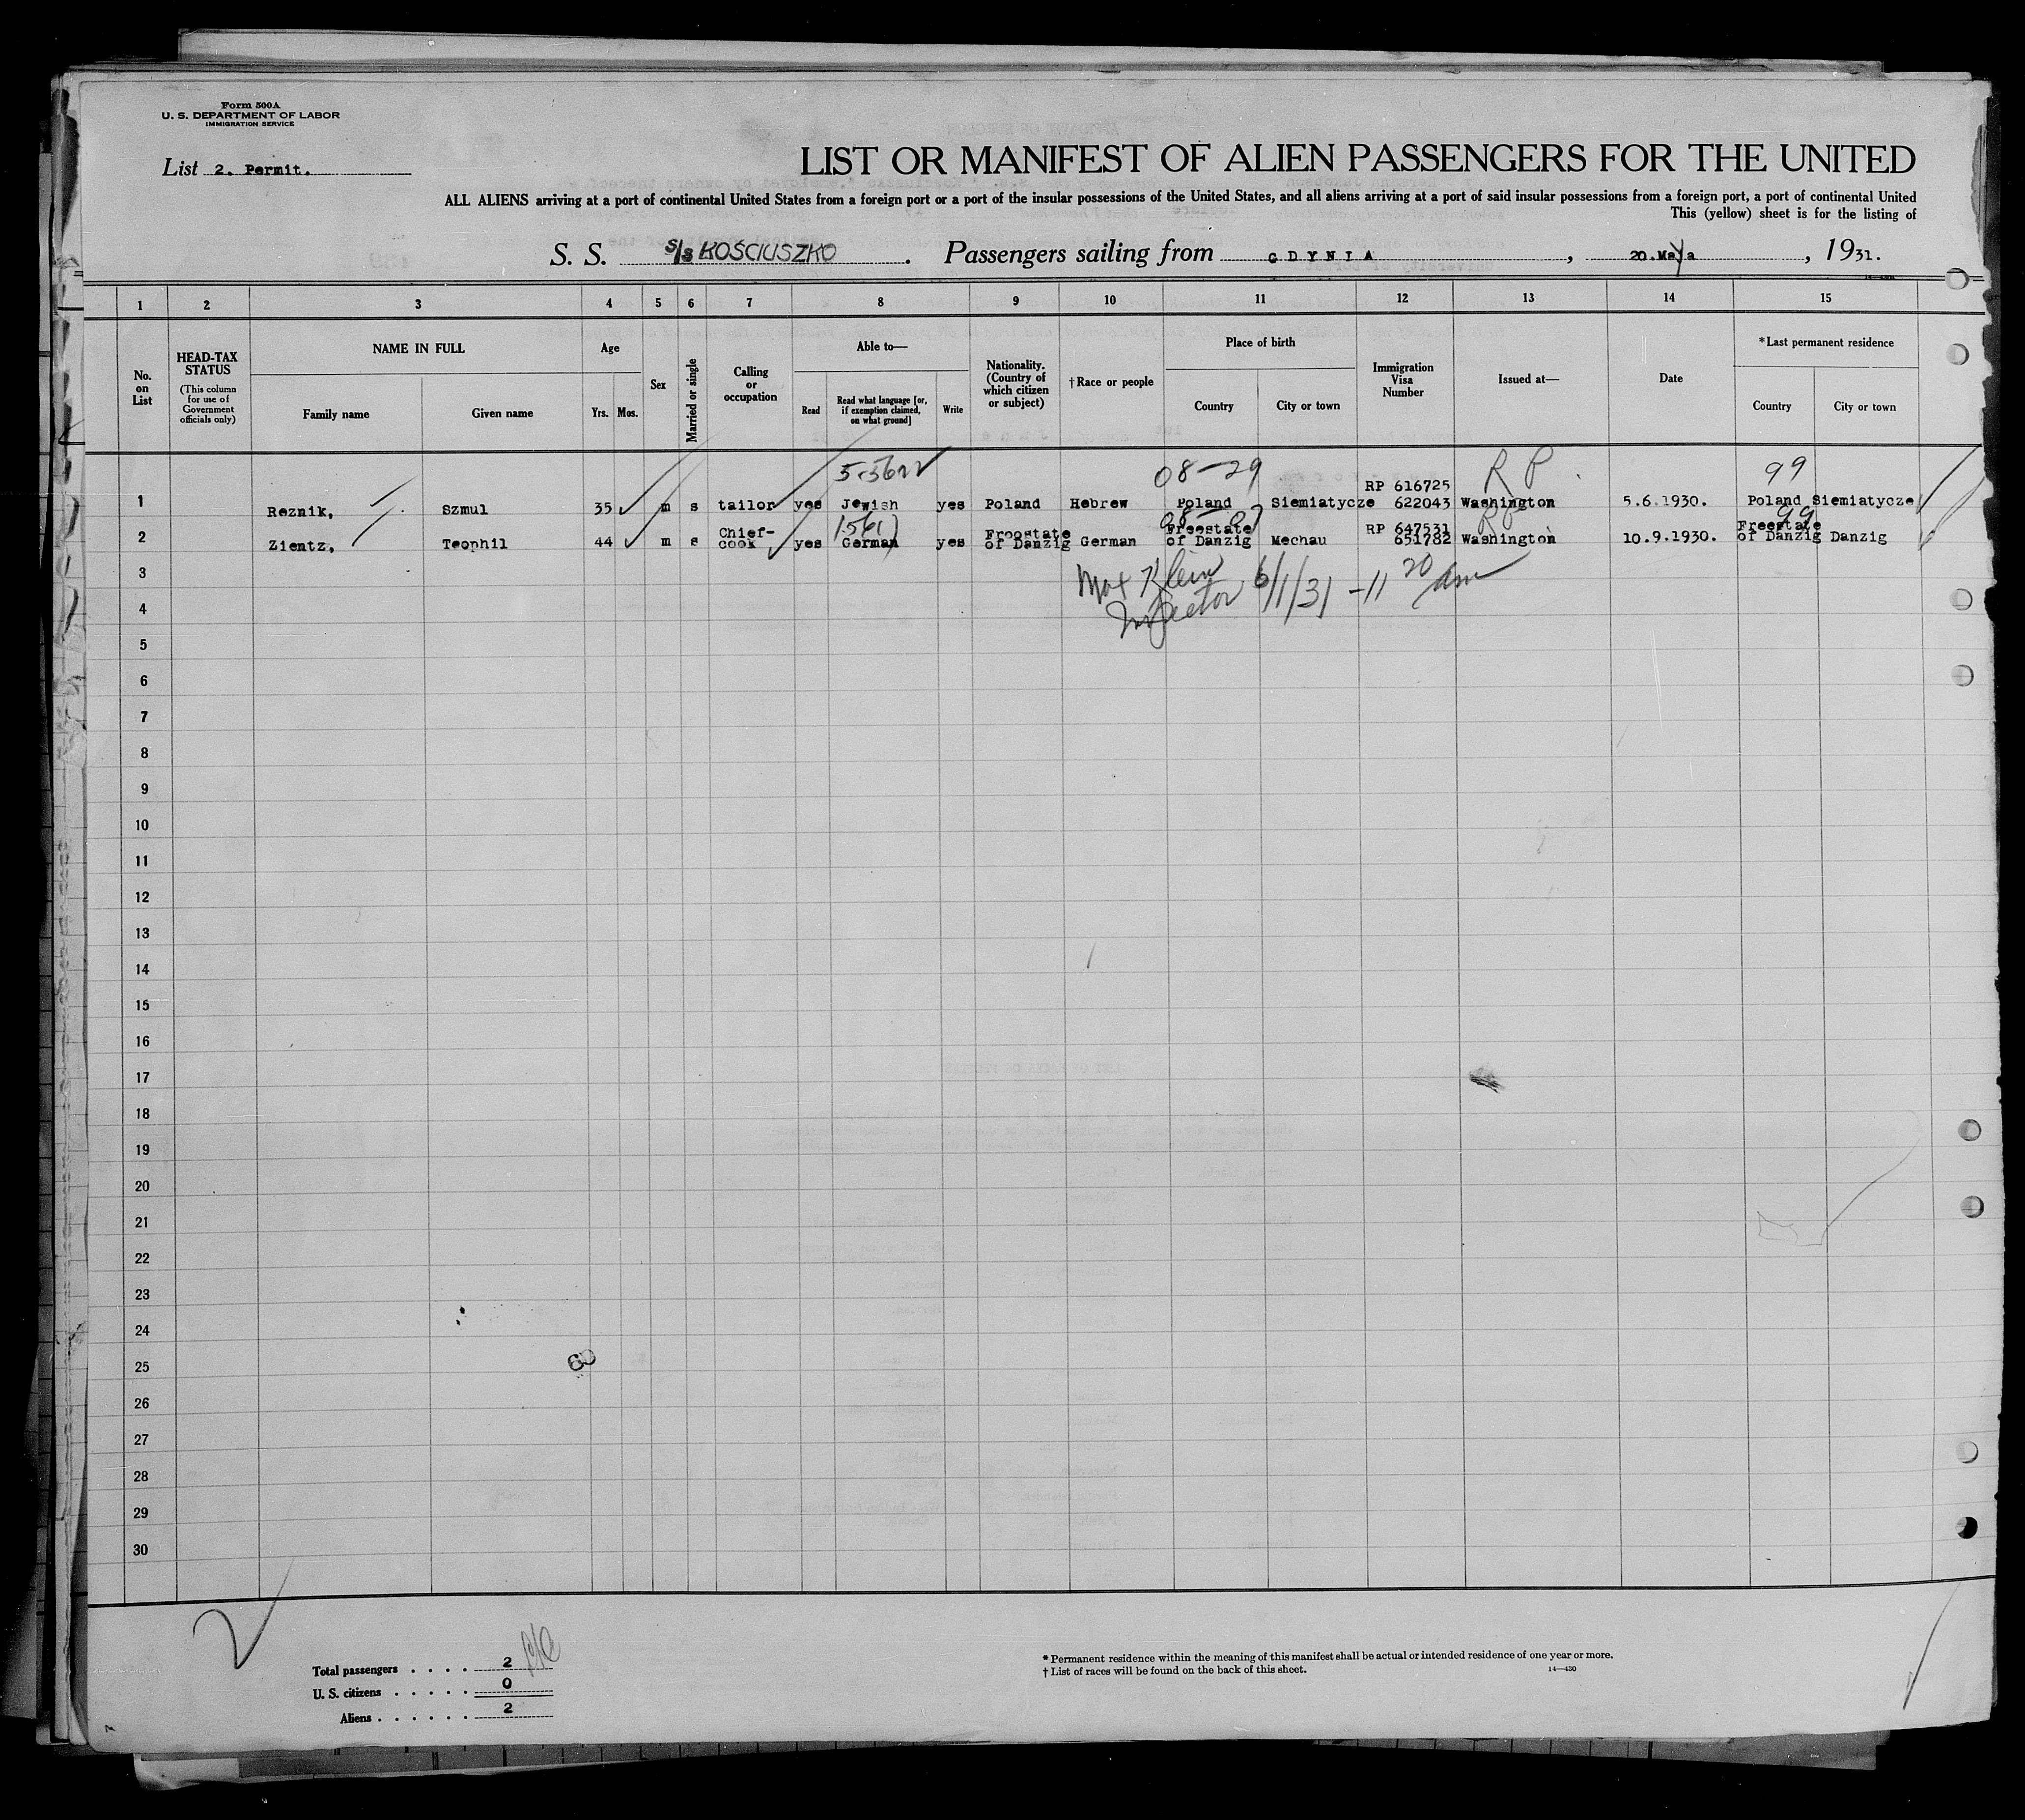 Form 500A
U. S. DEPARTMENT OF LABOR
IMMIGRATION SERVICE
List 2. Permit.
LIST OR MANIFEST OF ALIEN PASSENGERS FOR THE UNITED
ALL ALIENS arriving at a port of continental United States from a foreign port or a port of the insular possessions of the United States, and all aliens arriving at a port of said insular possessions from a foreign port, a port of continental United
This (yellow) sheet is for the listing of
S. S. S/S KOŚCIUSZKO . Passengers sailing from GDYNIA , 20.Maya , 1931.
1 2 3 4 5 6 7 8 9 10 11 12 13 14 15
No. on List
HEAD-TAX STATUS
(This column for use of Government officials only)
NAME IN FULL
Family name
Given name
Age
Yrs. Mos.
Sex
Married or single
Calling or occupation
Able to—
Read
Read what language [or, if exemption claimed, on what ground]
Write
Nationality. (Country of which citizen or subject)
†Race or people
Place of birth
Country
City or town
Immigration Visa Number
Issued at—
Date
*Last permanent residence
Country
City or town
08-29 R P 99
1 Reznik, Szmul 35 m s tailor yes Jewish yes Poland Hebrew Poland Siemiatycze RP 616725 622043 Washington 5.6.1930. Poland Siemiatycze
RP 99
2 Zientz, Teophil 44 m s Chief-cook yes German yes Freestate of Danzig German Freestate of Danzig Mechau RP 647531 651782 Washington 10.9.1930. Freestate of Danzig Danzig
3
Max Klein 6/1/31 - 11 20 am
Inspector
4
5
6
7
8
9
10
11
12
13
14
15
16
17
18
19
20
21
22
23
24
25
26
27
28
29
30
Total passengers . . . . 2
U. S. citizens . . . . . 0
Aliens . . . . . . 2
* Permanent residence within the meaning of this manifest shall be actual or intended residence of one year or more.
† List of races will be found on the back of this sheet.
14—430